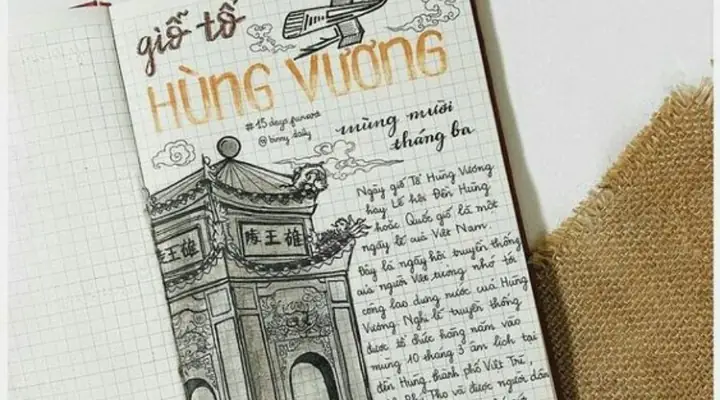 giỗ tổ
HÙNG VƯƠNG
#15days
@binny.daily
mùng mười
tháng ba
陵王雄
王雄
Ngày giỗ Tổ Hùng Vương
hay Lễ hội Đền Hùng
hoặc Quốc giỗ là một
ngày lễ của Việt Nam.
Đây là ngày hội truyền thống
của người Việt tưởng nhớ tới
công lao dựng nước của Hùng
Vương. Nghi lễ truyền thống
được tổ chức hàng năm vào
mùng 10 tháng 3 âm lịch tại
đền Hùng, thành phố Việt Trì,
Phú Thọ và được người dân